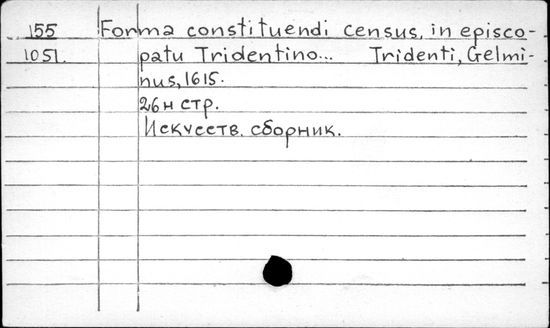 155 Forma constituendi census, in episco-
1051. patu Tridentino... Tridenti, Gelmi-
nus, 1615.
26 н стр.
Искусств. сборник.